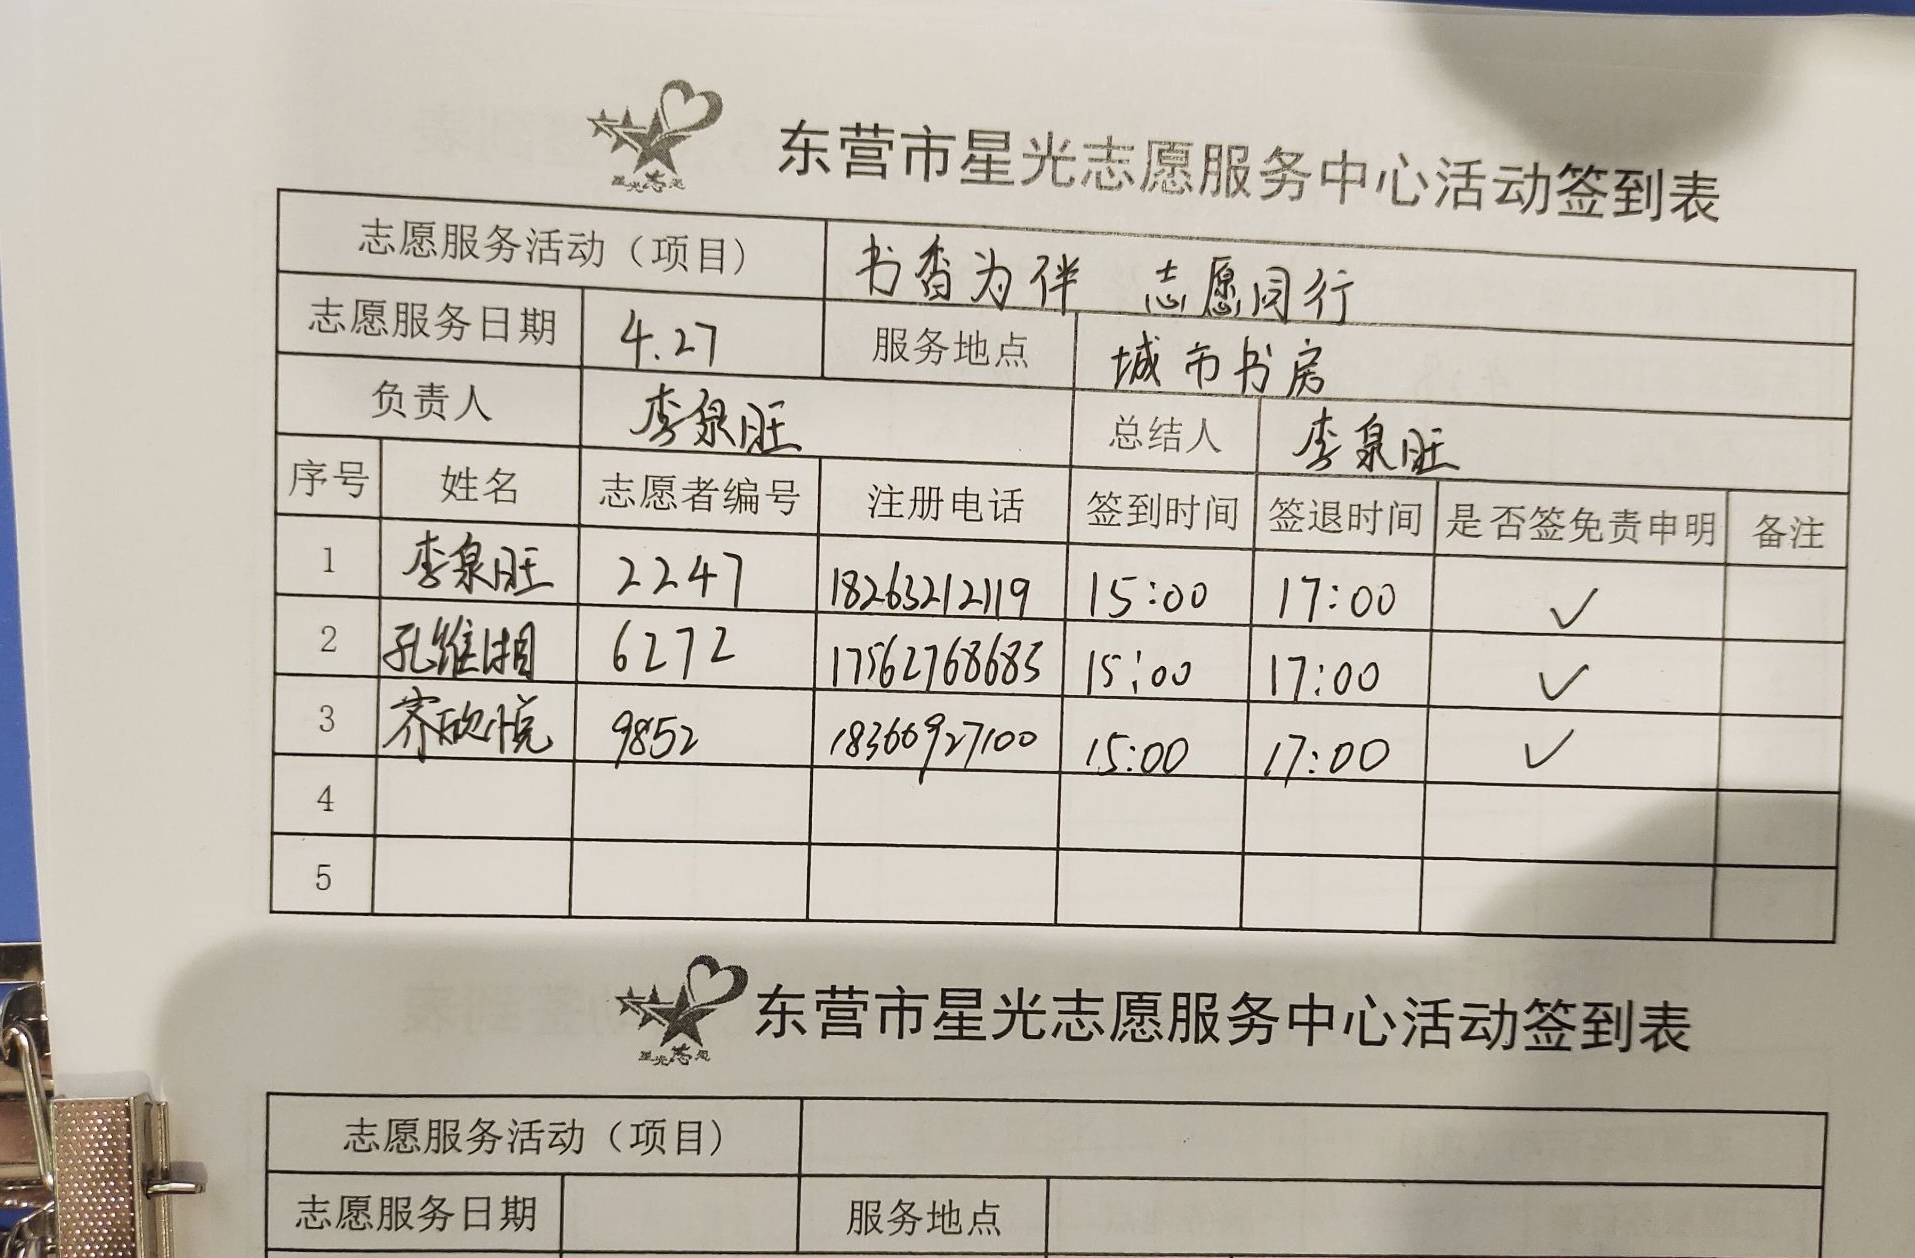 星光志愿
东营市星光志愿服务中心活动签到表
志愿服务活动（项目） 书香为伴 志愿同行
志愿服务日期 4.27 服务地点 城市书房
负责人 李泉旺 总结人 李泉旺
序号 姓名 志愿者编号 注册电话 签到时间 签退时间 是否签免责申明 备注
1 李泉旺 2247 18263212119 15:00 17:00 ✓
2 孔维湘 6272 17562768683 15:00 17:00 ✓
3 齐欣悦 9852 18366927100 15:00 17:00 ✓
4
5
星光志愿
东营市星光志愿服务中心活动签到表
志愿服务活动（项目）
志愿服务日期 服务地点